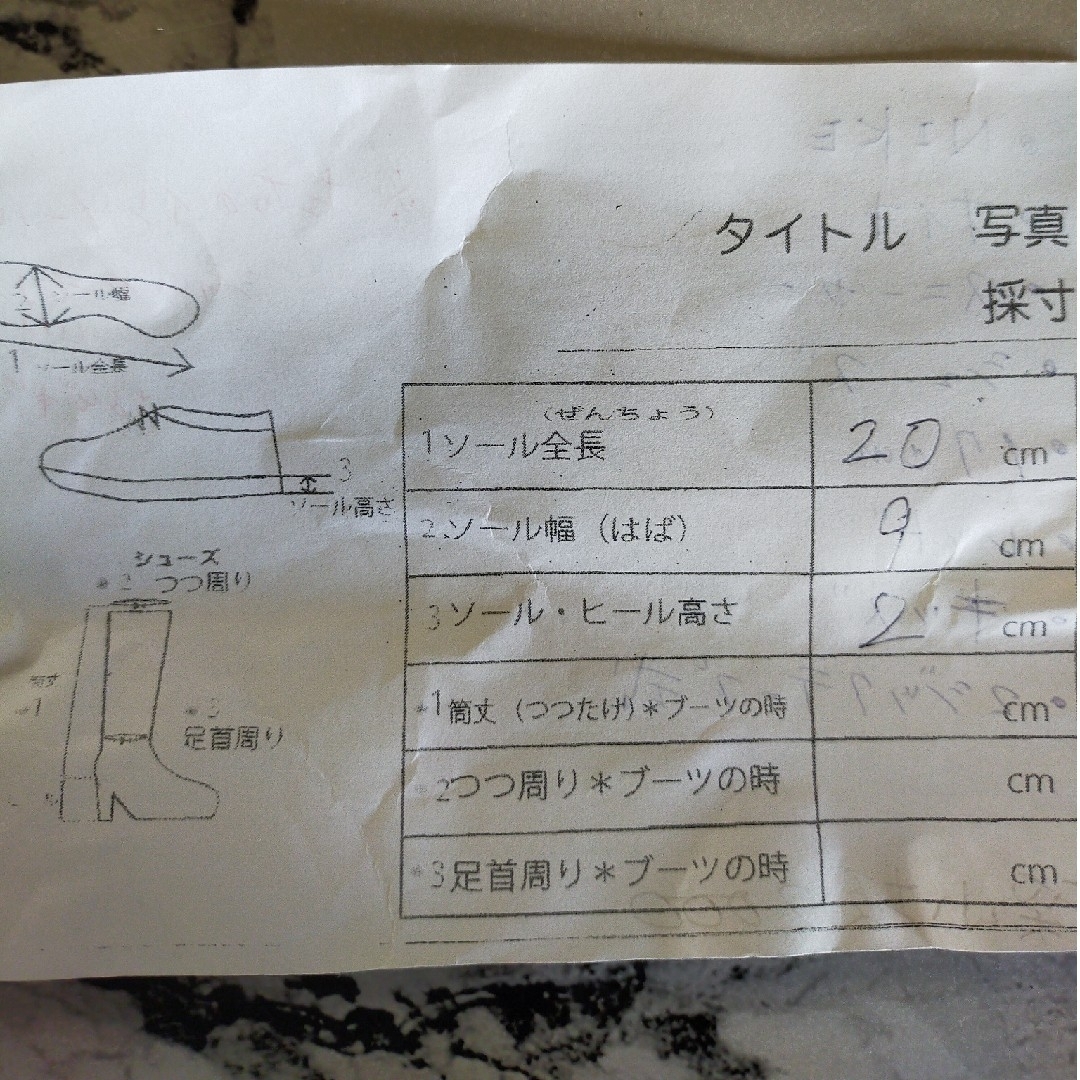 タイトル 写真
採寸
2 ソール幅
1 ソール全長
3
ソール高さ
シューズ
*2 つつ周り
*1
*3
足首周り
(ぜんちょう)
1ソール全長 20 cm
2.ソール幅（はば） 9 cm
3ソール・ヒール高さ 2 cm
*1筒丈（つつたけ）*ブーツの時 cm
*2つつ周り*ブーツの時 cm
*3足首周り*ブーツの時 cm